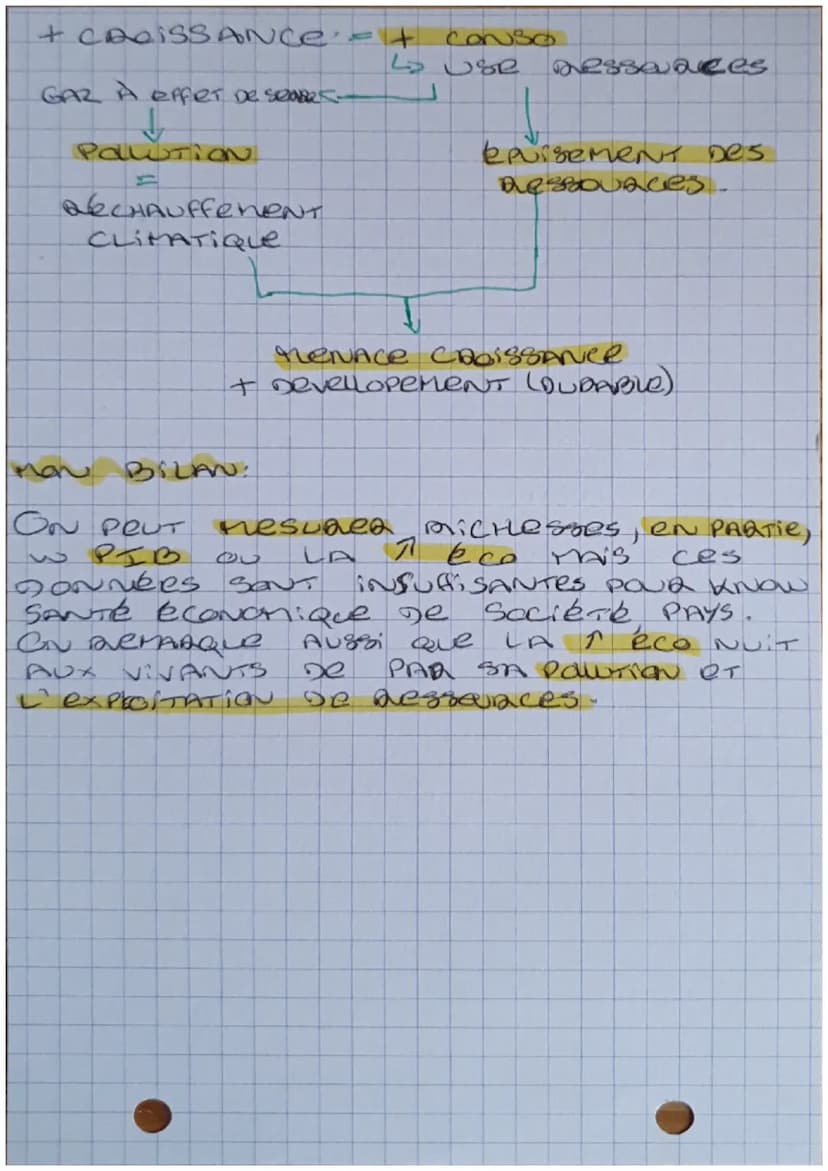 + CROISSANCE = + CONSO
↳ USE RESSOURCES
GAZ À EFFET DE SERRE
POLLUTION
ÉPUISEMENT DES
RESSOURCES.
=
RÉCHAUFFEMENT
CLIMATIQUE
MENACE CROISSANCE
+ DEVELLOPEMENT (DURABLE)
MON BILAN:
ON PEUT MESURER RICHESSES, EN PARTIE,
w PIB OU LA ↗ ÉCO MAIS CES
DONNÉES SONT INSUFFISANTES POUR KNOW
SANTÉ ÉCONOMIQUE DE SOCIÉTÉ PAYS.
ON REMARQUE AUSSI QUE LA ↑ ÉCO NUIT
AUX VIVANTS DE PAR SA POLLUTION ET
L'EXPLOITATION DE RESSOURCES.